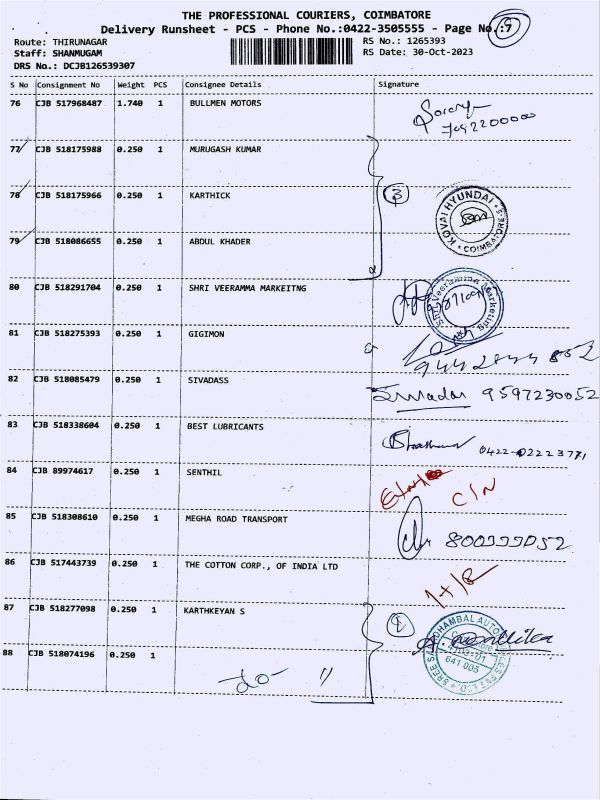 THE PROFESSIONAL COURIERS, COIMBATORE
Delivery Runsheet - PCS - Phone No.:0422-3505555 - Page No.:7
Route: THIRUNAGAR
RS No.: 1265393
Staff: SHANMUGAM
RS Date: 30-Oct-2023
DRS No.: DCJB126539307
S No Consignment No Weight PCS Consignee Details Signature
76 CJB 517968487 1.740 1 BULLMEN MOTORS
77 CJB 518175988 0.250 1 MURUGASH KUMAR
78 CJB 518175966 0.250 1 KARTHICK
3
KOVAI HYUNDAI
COIMBATORE
79 CJB 518086655 0.250 1 ABDUL KHADER
80 CJB 518291704 0.250 1 SHRI VEERAMMA MARKEITNG
Shri Veeramma Marketing
81 CJB 518275393 0.250 1 GIGIMON
82 CJB 518085479 0.250 1 SIVADASS
9597230052
83 CJB 518338604 0.250 1 BEST LUBRICANTS
84 CJB 89974617 0.250 1 SENTHIL
C/N
85 CJB 518308610 0.250 1 MEGHA ROAD TRANSPORT
86 CJB 517443739 0.250 1 THE COTTON CORP., OF INDIA LTD
87 CJB 518277098 0.250 1 KARTHKEYAN S
88 CJB 518074196 0.250 1
641 005